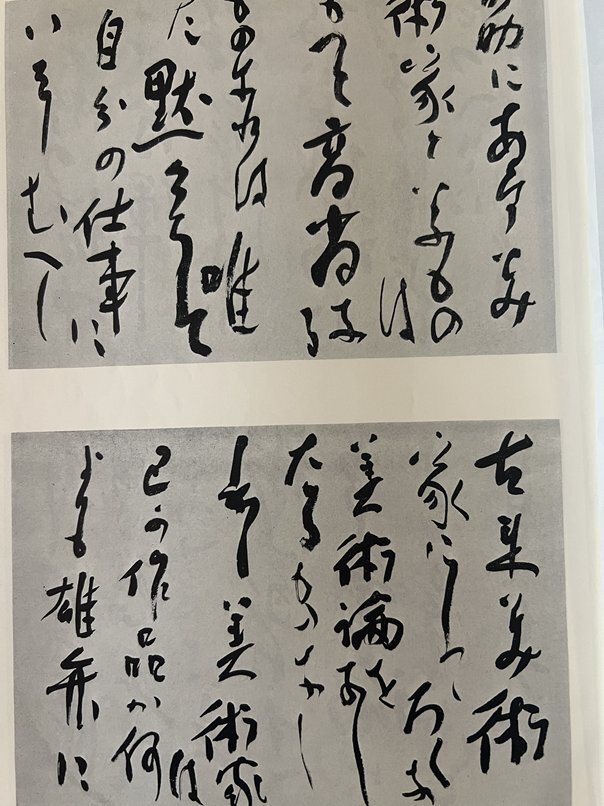 助にあり美
術家と云ふものは
もつと高尚なる
ものなれは唯
た黙々として
自分の仕事に
いそしむへし
古来美術
家にしてろくな
美術論をなし
たるものなし
美術家は
己の作品か何
よりも雄弁に